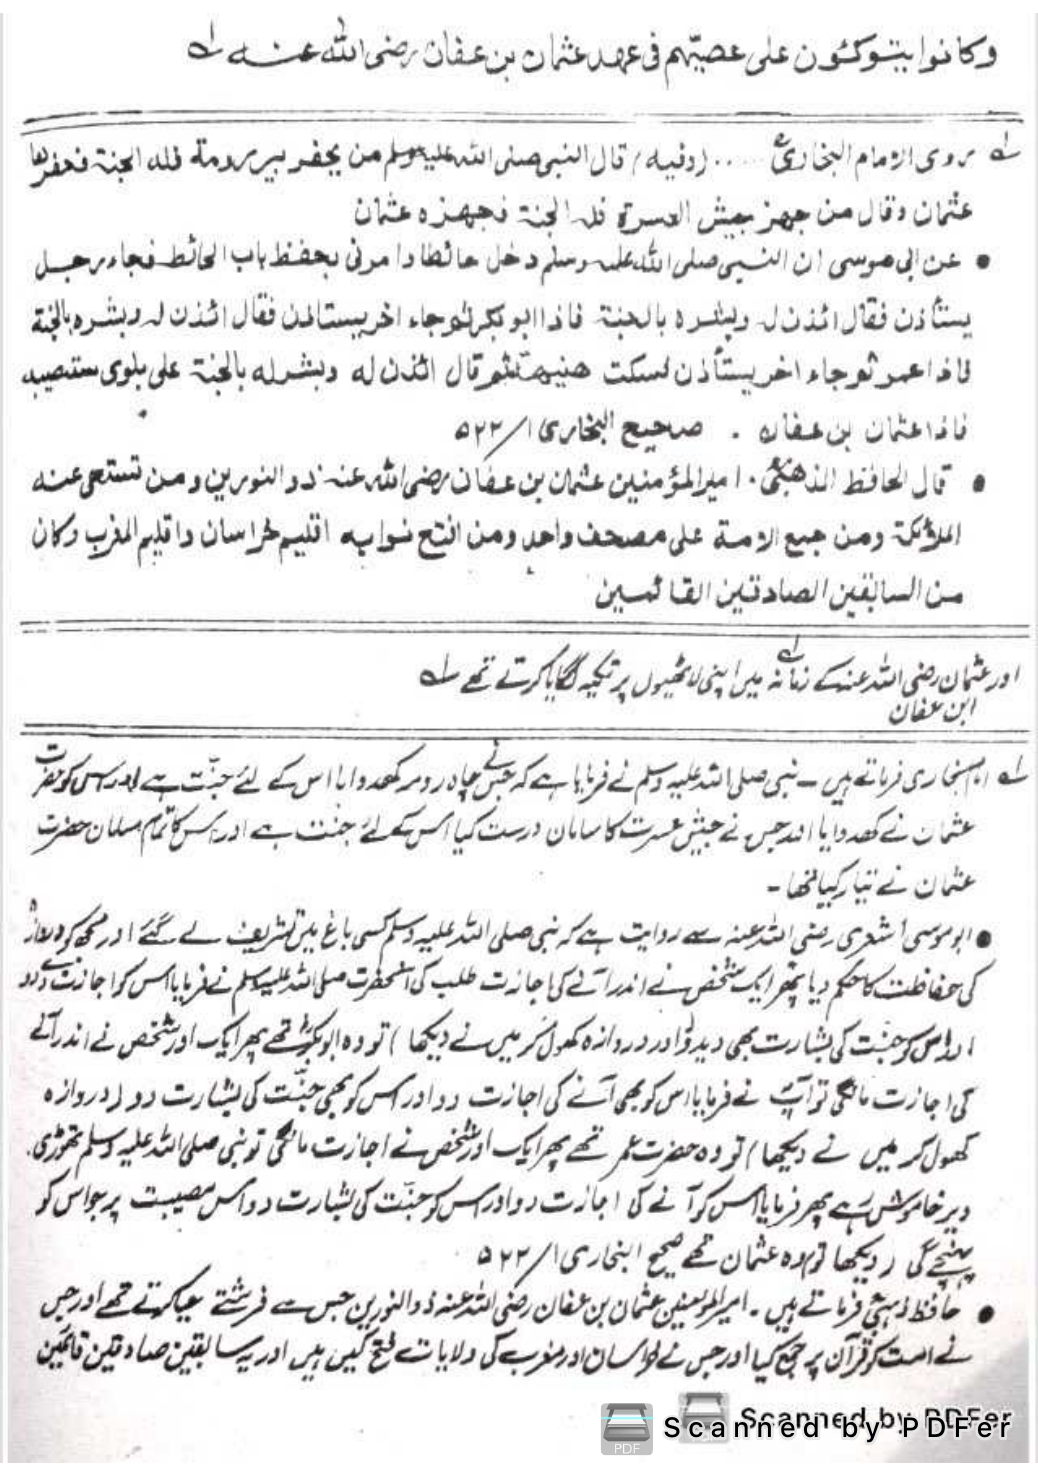 وكانوا يتوكئون على عصيّهم فى عهد عثمان بن عفان رضى الله عنه له
له روى الامام البخارىؒ ..... (وفيه) قال النبى صلى الله عليه وسلم من يحفر بير رومة فله الجنة فحفرها
عثمان وقال من جهز جيش العسرة فله الجنة فجهزه عثمان
● عن ابى موسى ان النبى صلى الله عليه وسلم دخل حائطا وامرنى بحفظ باب الحائط فجاء رجل
يستأذن فقال ائذن له وبشره بالجنة فاذا ابو بكر ثم جاء اخر يستاذن فقال ائذن له وبشره بالجنة
فاذا عمر ثم جاء اخر يستأذن فسكت هنيهة ثم قال ائذن له وبشر له بالجنة على بلوى ستصيبه
فاذا عثمان بن عفان ۔ صحيح البخارى ۱/۵۲۲
● قال الحافظ الذهبىؒ۔ امير المؤمنين عثمان بن عفان رضى الله عنه ذو النورين ومن تستحى عنه
الملائكة ومن جمع الامة على مصحف واحد ومن افتتح نوابه اقليم خراسان واقليم المغرب وكان
من السابقين الصادقين القائمين
اور عثمان رضی اللہ عنہ کے زمانہ میں اپنی لاٹھیوں پر تکیہ لگایا کرتے تھے لہ
ابن عفان
لہ امام بخاری فرماتے ہیں ۔ نبی صلی اللہ علیہ وسلم نے فرمایا ہے کہ جس نے چاہ رومہ کھدوایا اس کے لئے جنّت ہے اور اس کو حضرت
عثمان نے کھدوایا اور جس نے جیش عسرت کا سامان درست کیا اس کے لئے جنت ہے اور اس کا تمام سامان حضرت
عثمان نے تیار کیا تھا ۔
● ابو موسیٰ اشعری رضی اللہ عنہ سے روایت ہے کہ نبی صلی اللہ علیہ وسلم کسی باغ میں تشریف لے گئے اور مجھ کو دروازہ
کی حفاظت کا حکم دیا پھر ایک شخص نے اندر آنے کی اجازت طلب کی آنحضرت صلی اللہ علیہ وسلم نے فرمایا اس کو اجازت دے دو
اور اس کو جنّت کی بشارت بھی دیدو (اور دروازہ کھول کر میں نے دیکھا) تو وہ ابوبکرؓ تھے پھر ایک اور شخص نے اندر آنے
کی اجازت مانگی تو آپؐ نے فرمایا اس کو بھی آنے کی اجازت دو اور اس کو بھی جنّت کی بشارت دو (دروازہ
کھول کر میں نے دیکھا) تو وہ حضرت عمر تھے پھر ایک اور شخص نے اجازت مانگی تو نبی صلی اللہ علیہ وسلم تھوڑی
دیر خاموش رہے پھر فرمایا اس کو آنے کی اجازت دو اور اس کو جنّت کی بشارت دو اس مصیبت پر جو اس کو
پہنچے گی (دیکھا تو) وہ عثمان تھے صحیح البخاری ۱/۵۲۲
● حافظ ذہبیؒ فرماتے ہیں ۔ امیر المومنین عثمان بن عفان رضی اللہ عنہ ذوالنورین جس سے فرشتے حیا کرتے تھے اور جس
نے امت کو قرآن پر جمع کیا اور جس نے خراسان اور مغرب کی ولایات فتح کیں ہیں اور یہ سابقین صادقین قائمین
Scanned by PDFer
PDF
Scanned by PDFer